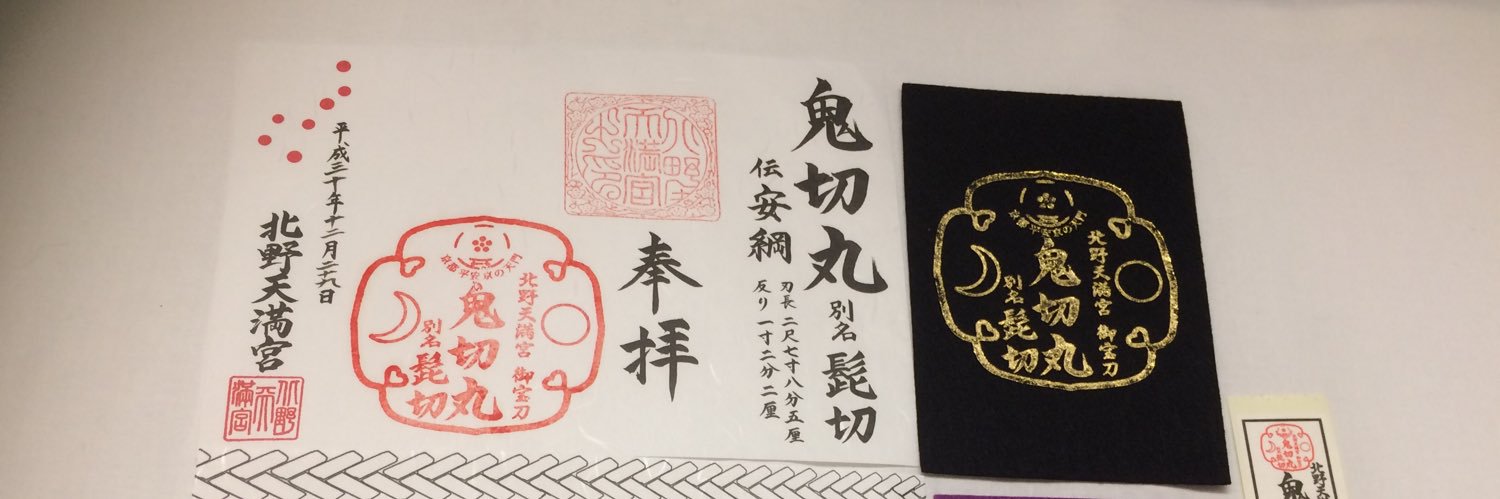 鬼切丸 別名 髭切
伝 安綱
刃長 二尺七寸八分五厘
反り 一寸二分二厘
奉拝
北野天満宮 御宝刀
鬼切丸
別名 髭切
平成三十年十二月二十九日
北野天満宮
北野天満宮
北野天満宮 御宝刀
鬼切丸
別名 髭切
鬼切丸
髭切
北野天
鬼